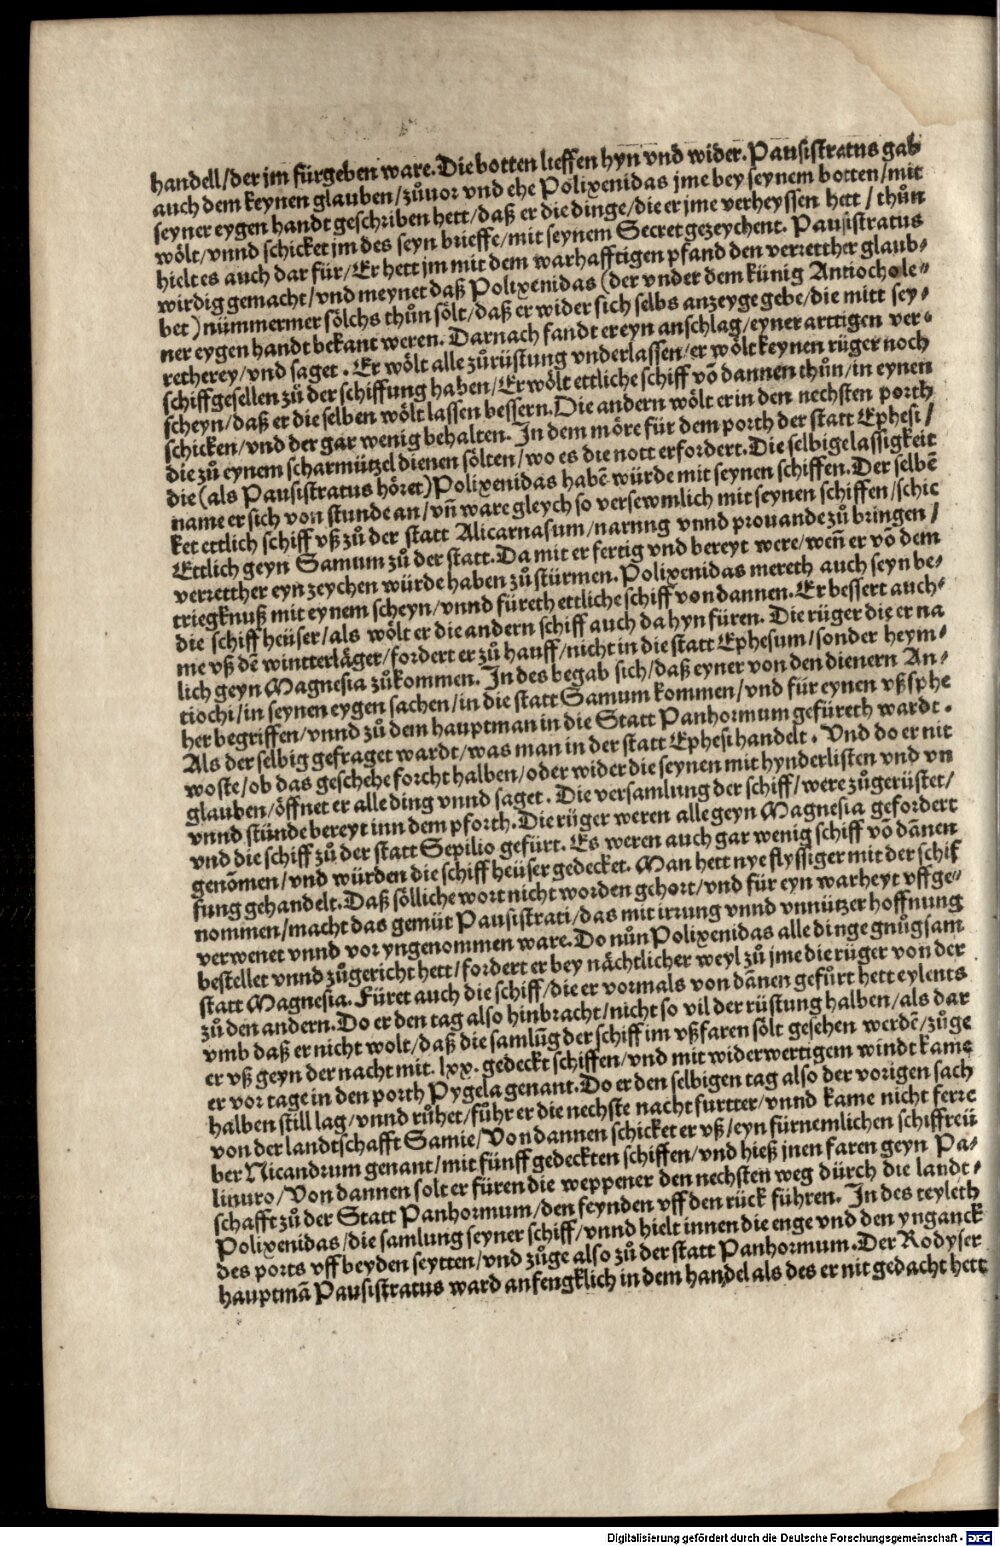 handell/der jm fürgeben ware. Die botten lieffen hyn vnd wider. Pausistratus gab
auch dem keynen glauben/zůuor vnd ehe Polixenidas jme bey seynem botten/mit
seyner eygen handt geschriben hett/daß er die dinge/die er jme verheyssen hett/thůn
wölt/vnnd schicket jm des seyn brieffe/mit seynem Secret gezeychent. Pausistratus
hielt es auch dar für/Er hett jm mit dem warhafftigen pfand den verretther glaub-
wirdig gemacht/vnd meynet daß Polixenidas (der vnder dem künig Antiocho le-
bet) nümmermer sölchs thůn sölt/daß er wider sich selbs anzeyge gebe/die mitt sey-
ner eygen handt bekant weren. Darnach fandt er eyn anschlag/eyner arttigen ver-
retherey/vnd saget. Er wölt alle zůrüstung vnderlassen/er wölt keynen rüger noch
schiffgesellen zů der schiffung haben/Er wölt ettliche schiff võ dannen thůn/in eynen
scheyn/daß er die selben wölt lassen bessern. Die andern wölt er in den nechsten porth
schicken/vnd der gar wenig behalten. In dem möre für dem porth der statt Ephesi/
die zů eynem scharmützel dienen sölten/wo es die nott erfordert. Die selbige lassigkeit
die (als Pausistratus höret) Polixenidas habẽ würde mit seynen schiffen. Der selbẽ
name er sich von stunde an/vñ ware gleych so versewmlich mit seynen schiffen/schic
ket ettlich schiff vß zů der statt Alicarnasum/narung vnnd prouande zů bringen/
Ettlich geyn Samum zů der statt. Da mit er fertig vnd bereyt were/weñ er võ dem
verretther eyn zeychen würde haben zů stürmen. Polixenidas mereth auch seyn be-
triegknuß mit eynem scheyn/vnnd füreth ettliche schiff von dannen. Er bessert auch-
die schiff heüser/als wölt er die andern schiff auch da hyn füren. Die rüger die er na
me vß dẽ wintterläger/fordert er zů hauff/nicht in die statt Ephesum/sonder heym-
lich geyn Magnesia zůkommen. In des begab sich/daß eyner von den dienern An-
tiochi/in seynen eygen sachen/in die statt Samum kommen/vnd für eynen vßsphe
her begriffen/vnnd zů dem hauptman in die Statt Panhormum gefüreth wardt.
Als der selbig gefraget wardt/was man in der statt Ephesi handelt. Vnd do er nit
woste/ob das geschehe forcht halben/oder wider die seynen mit hynderlisten vnd vn
glauben/öffnet er alle ding vnnd saget. Die versamlung der schiff/were zůgerüstet/
vnnd stünde bereyt inn dem pforth. Die rüger weren alle geyn Magnesia gefordert
vnd die schiff zů der statt Sepilio gefürt. Es weren auch gar wenig schiff võ dãnen
genõmen/vnd würden die schiff heüser gedecket. Man hett nye flyssiger mit der schif
fung gehandelt. Daß sölliche wort nicht worden gehort/vnd für eyn warheyt vffge-
nommen/macht das gemüt Pausistrati/das mit irrung vnnd vnnützer hoffnung
verwenet vnnd vor yngenommen ware. Do nůn Polixenidas alle dinge gnůgsam
bestellet vnnd zůgericht hett/fordert er bey nächtlicher weyl zů jme die rüger von der
statt Magnesia. Füret auch die schiff/die er vormals von dãnen gefůrt hett eylents
zů den andern. Do er den tag also hinbracht/nicht so vil der rüstung halben/als dar
vmb daß er nicht wolt/daß die samlũg der schiff im vßfaren sölt gesehen werdẽ/zůge
er vß geyn der nacht mit. lxx. gedeckt schiffen/vnd mit widerwertigem windt kame
er vor tage in den porth Pygela genant. Do er den selbigen tag also der vorigen sach
halben still lag/vnnd růhet/fůhr er die nechste nacht furtter/vnnd kame nicht ferre
von der landtschafft Samie/Von dannen schicket er vß/eyn fürnemlichen schiffreü
ber Nicandrum genant/mit fünff gedeckten schiffen/vnd hieß jnen faren geyn Pa-
linuro/Von dannen solt er füren die weppener den nechsten weg dürch die landt-
schafft zů der Statt Panhormum/den feynden vff den rück führen. In des teyleth
Polixenidas/die samlung seyner schiff/vnnd hielt innen die enge vnd den ynganck
des ports vff beyden seytten/vnd zůge also zů der statt Panhormum. Der Rodyser
hauptmã Pausistratus ward anfengklich in dem handel als des er nit gedacht hett
Digitalisierung gefördert durch die Deutsche Forschungsgemeinschaft - DFG